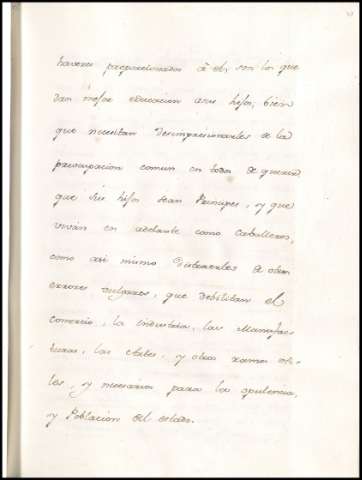 haveres proporcionados à el, son los que
dan mejor educacion a sus hijos, bien
que necesitan desimpresionarles de la
preocupacion comun en todos de querer
que sus hijos sean Principes, y que
vivan en adelante como Caballeros,
como asi mismo disuaderles de otros
errores vulgares, que debilitan el
comercio, la industria, las Manufac
turas, las Artes, y otros ramos uti-
les, y necesarios para la opulencia,
y Poblacion del estado.